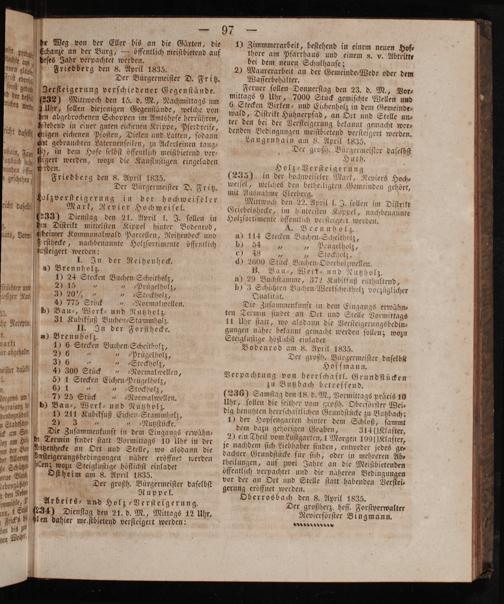 — 97 —
der Weg von der Eller bis an die Gärten, die
Schanze an der Burg, — öffentlich meistbietend auf
dieses Jahr verpachtet werden.
Friedberg den 8. April 1835.
Der Bürgermeister D. Fritz.
Versteigerung verschiedener Gegenstände.
(232) Mittwochen den 15. d. M., Nachmittags um
2 Uhr, sollen diejenigen Gegenstände, welche von
den abgebrochenen Schoppen im Amtshofe herrühren,
bestehend in einer guten eichenen Krippe, Pferdreife,
einigen eichenen Pfosten, Dielen und Latten, sodann
gut gebrauchten Baternensteinen, zu Ackerleinen taug-
lich, in dem Hofe selbst öffentlich meistbietend ver-
steigert werden, wozu die Kauflustigen eingeladen
werden.
Friedberg den 8. April 1835.
Der Bürgermeister D. Fritz.
Holzversteigerung in der hochweiseler
Mark, Revier Hochweisel.
(233) Dienstag den 21. April l. J. sollen in
den Distrikt mittelsten Kippel hinter Bodenrod,
Ostheimer Kommunalwald Parcellen, Reihenheck und
Forsthecke, nachbenannte Holzsortimente öffentlich
versteigert werden:
I. In der Reihenheck.
a) Brennholz.
1) 24 Stecken Buchen-Scheitholz,
2) 15 „ „ -Prügelholz,
3) 20½ „ „ -Stockholz,
4) 775 Stück „ -Normalwellen.
b) Bau-, Werk- und Nutzholz.
31 Kubikfuß Buchen-Stammholz.
II. In der Forsthecke.
a) Brennholz.
1) 6 Stecken Buchen-Scheitholz,
2) 6 „ „ -Prügelholz,
3) 6 „ „ -Stockholz,
4) 300 Stück „ -Normalwellen,
5) 1 Stecken Eichen-Prügelholz,
6) 1 „ „ -Stockholz,
7) 25 Stück „ -Normalwellen.
b) Bau-, Werk- und Nutzholz.
1) 211 Kubikfuß Eichen-Stammholz,
2) 3 „ „ -Nutzstücke.
Die Zusammenkunft in dem Eingangs erwähn-
ten Termin findet statt Vormittags 10 Uhr in der
Reihenhecke an Ort und Stelle, wo alsdann die
Versteigerungsbedingungen näher eröffnet werden
sollen; wozu Steiglustige höflichst einladet
Ostheim am 8. April 1835.
Der großh. Bürgermeister daselbst
Ruppel.
Arbeits- und Holz-Versteigerung.
(234) Dienstag den 21. d. M., Mittags 12 Uhr,
sollen dahier meistbietend versteigert werden:
1) Zimmerarbeit, bestehend in einem neuen Hof-
thore am Pfarrhaus und einem s. v. Abtritte
bei dem neuen Schulhause;
2) Maurerarbeit an der Gemeinde-Wede oder dem
Wasserbehälter.
Ferner sollen Donnerstag den 23. d. M., Vor-
mittags 9 Uhr, 7000 Stück gemischte Wellen und
6 Stecken Birken- und Eichenholz in dem Gemeinde-
wald, Distrikt Hühnerpfad, an Ort und Stelle un-
ter den bei der Versteigerung bekannt gemacht wer-
denden Bedingungen meistbietend versteigert werden.
Langenhain am 8. April 1835.
Der großh. Bürgermeister daselbst
Huth.
Holz-Versteigerung
(235) in der hochweiseler Mark, Reviers Hoch-
weisel, welches den betheiligten Gemeinden gehört,
mit Ausnahme Bierberg.
Mittwoch den 22. April l. J. sollen im Distrikt
Geisbelshecke, im hintersten Kippel, nachbenannte
Holzsortimente öffentlich versteigert werden.
A. Brennholz.
a) 114 Stecken Buchen-Scheitholz,
b) 54 „ „ -Prügelholz,
c) 48 „ „ -Stockholz,
d) 2600 Stück Buchen-Oberholzwellen.
B. Bau-, Werk- und Nutzholz.
a) 29 Buchstämme, 372 Kubikfuß enthaltend,
b) 3 Schlägen Buchen-Werkscheitholz vorzüglicher
Qualität.
Die Zusammenkunft in dem Eingangs erwähn-
ten Termin findet an Ort und Stelle Vormittags
11 Uhr statt, wo alsdann die Versteigerungsbedin-
gungen näher bekannt gemacht werden sollen; wozu
Steiglustige höflichst einladet
Bodenrod am 8. April 1835.
Der großh. Bürgermeister daselbst
Hoffmann.
Verpachtung von herrschaftl. Grundstücken
zu Butzbach betreffend.
(236) Samstag den 18. d. M., Vormittags präcis 10
Uhr, sollen die seither vom großh. Oberförster Wei-
dig benutzten herrschaftlichen Grundstücke zu Butzbach:
1) der Hopfengarten hinter dem Schloß, sammt
dem dazu gehörigen Graben, 314 □Klafter,
2) ein Theil vom Lustgarten, 1 Morgen 199 □Klafter,
je nachdem sich Liebhaber finden, entweder jedes ge-
dachter Grundstücke für sich, oder in mehreren Ab-
theilungen, auf zwei Jahre an die Meistbietenden
öffentlich verpachtet und die näheren Bedingungen
vor der an Ort und Stelle statt habenden Verstei-
gerung eröffnet werden.
Oberrosbach den 8. April 1835.
Der großherz. hess. Forstverwalter
Revierförster Bingmann.